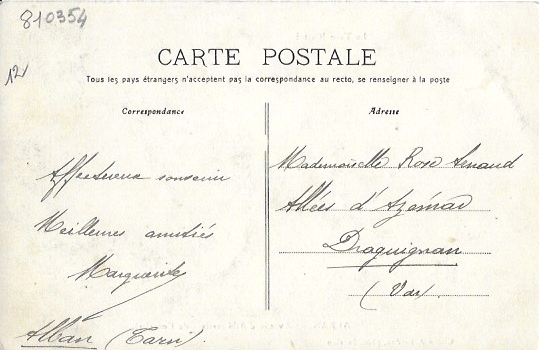 810354
12
CARTE POSTALE
Tous les pays étrangers n'acceptent pas la correspondance au recto, se renseigner à la poste
Correspondance
Affectueux souvenir
Meilleures amitiés
Marguerite
Alban (Tarn)
Adresse
Mademoiselle Rose Arnaud
Allées d'Azémar
Draguignan
(Var)